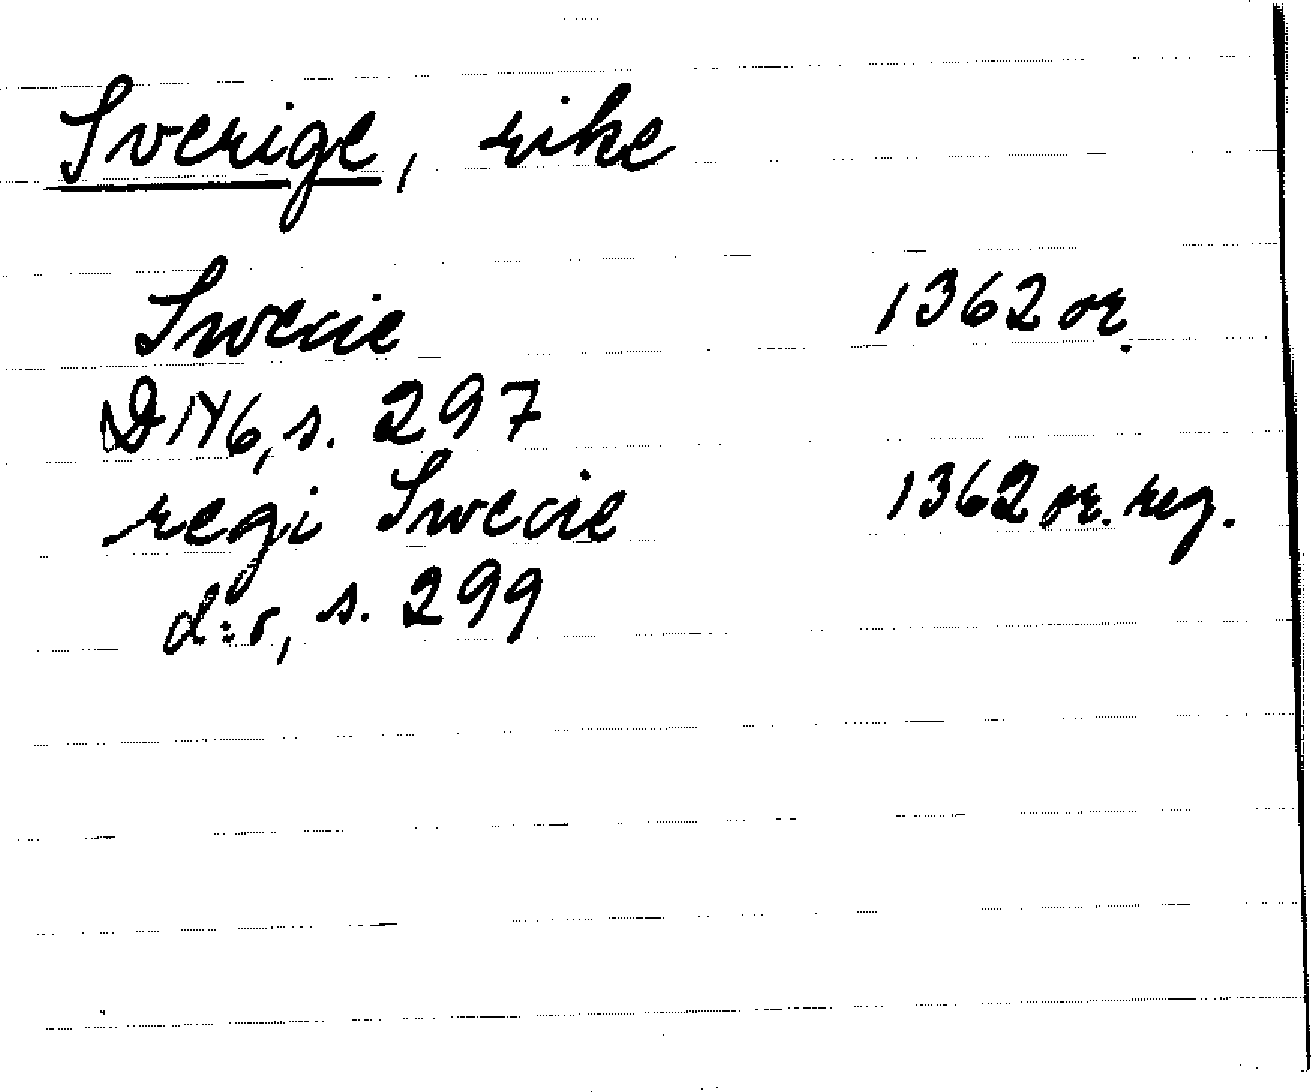 Sverige, rike
Swecie 1362 or.
DN6, s. 297
regi Swecie 1362 or. reg.
d:o, s. 299